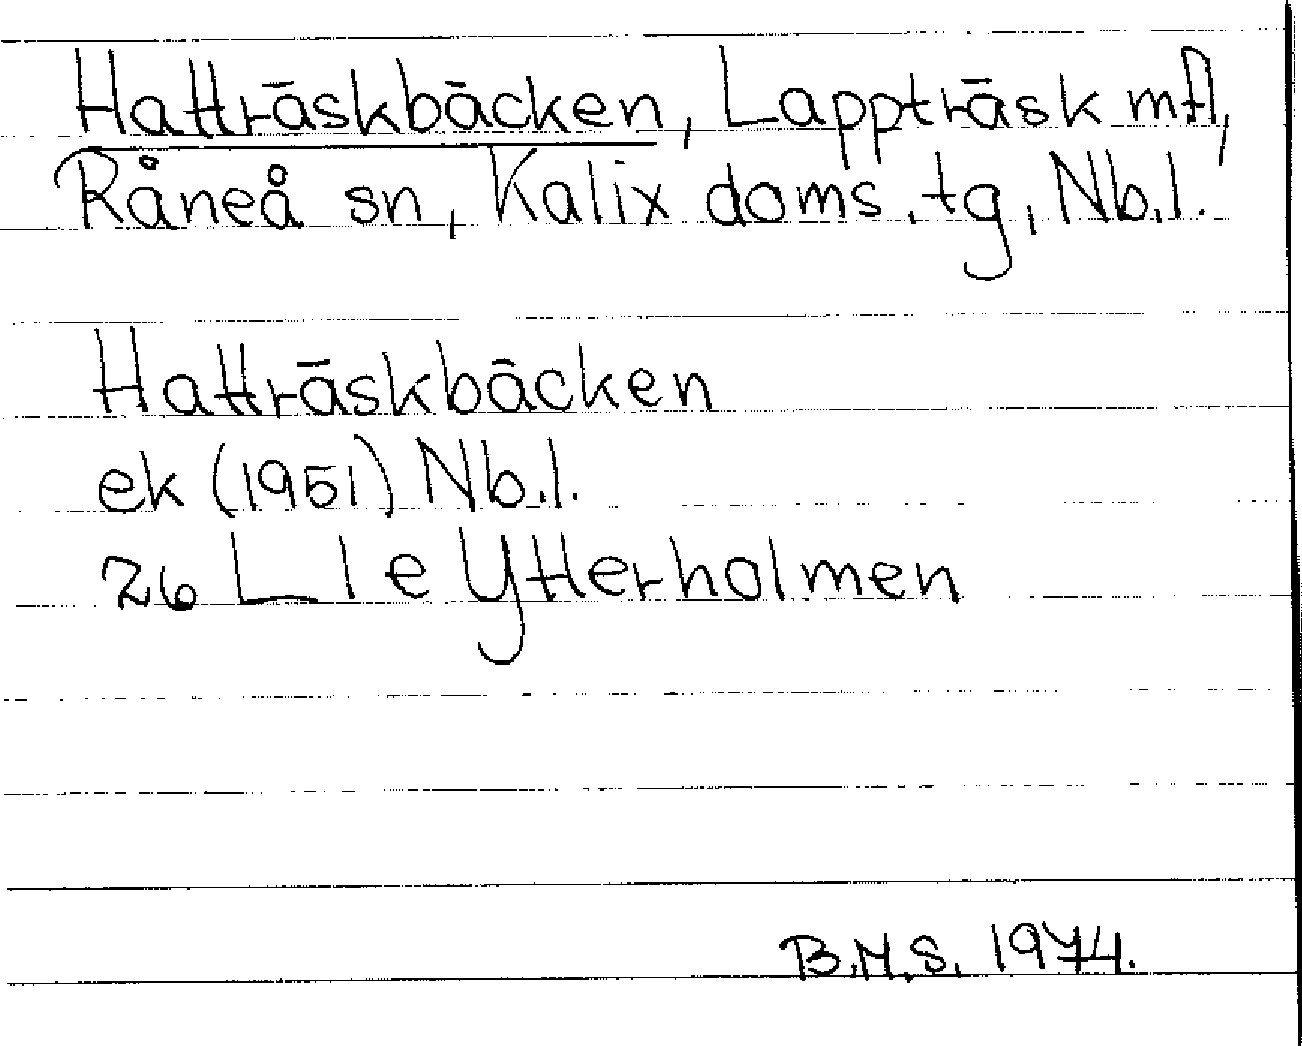 Hatträskbäcken, Lappträsk mfl,
Råneå sn, Kalix doms. tg, Nb.l.
Hatträskbäcken
ek (1951) Nb.l.
26 L 1 e Ytterholmen
B.M.S. 1974.